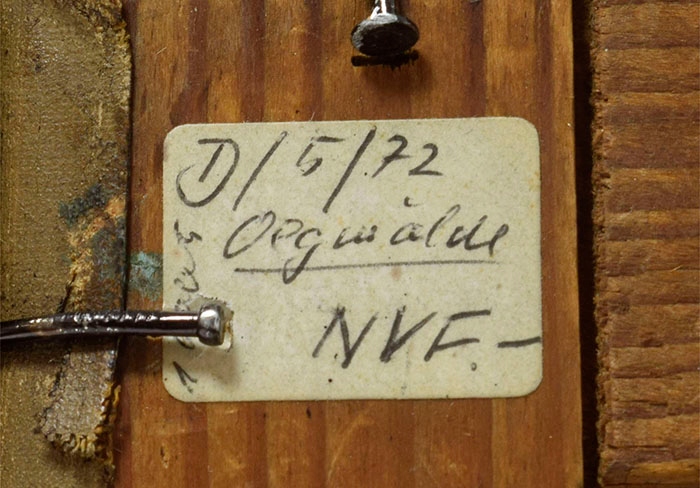 D/5/72
Oegmälde
NVF.-